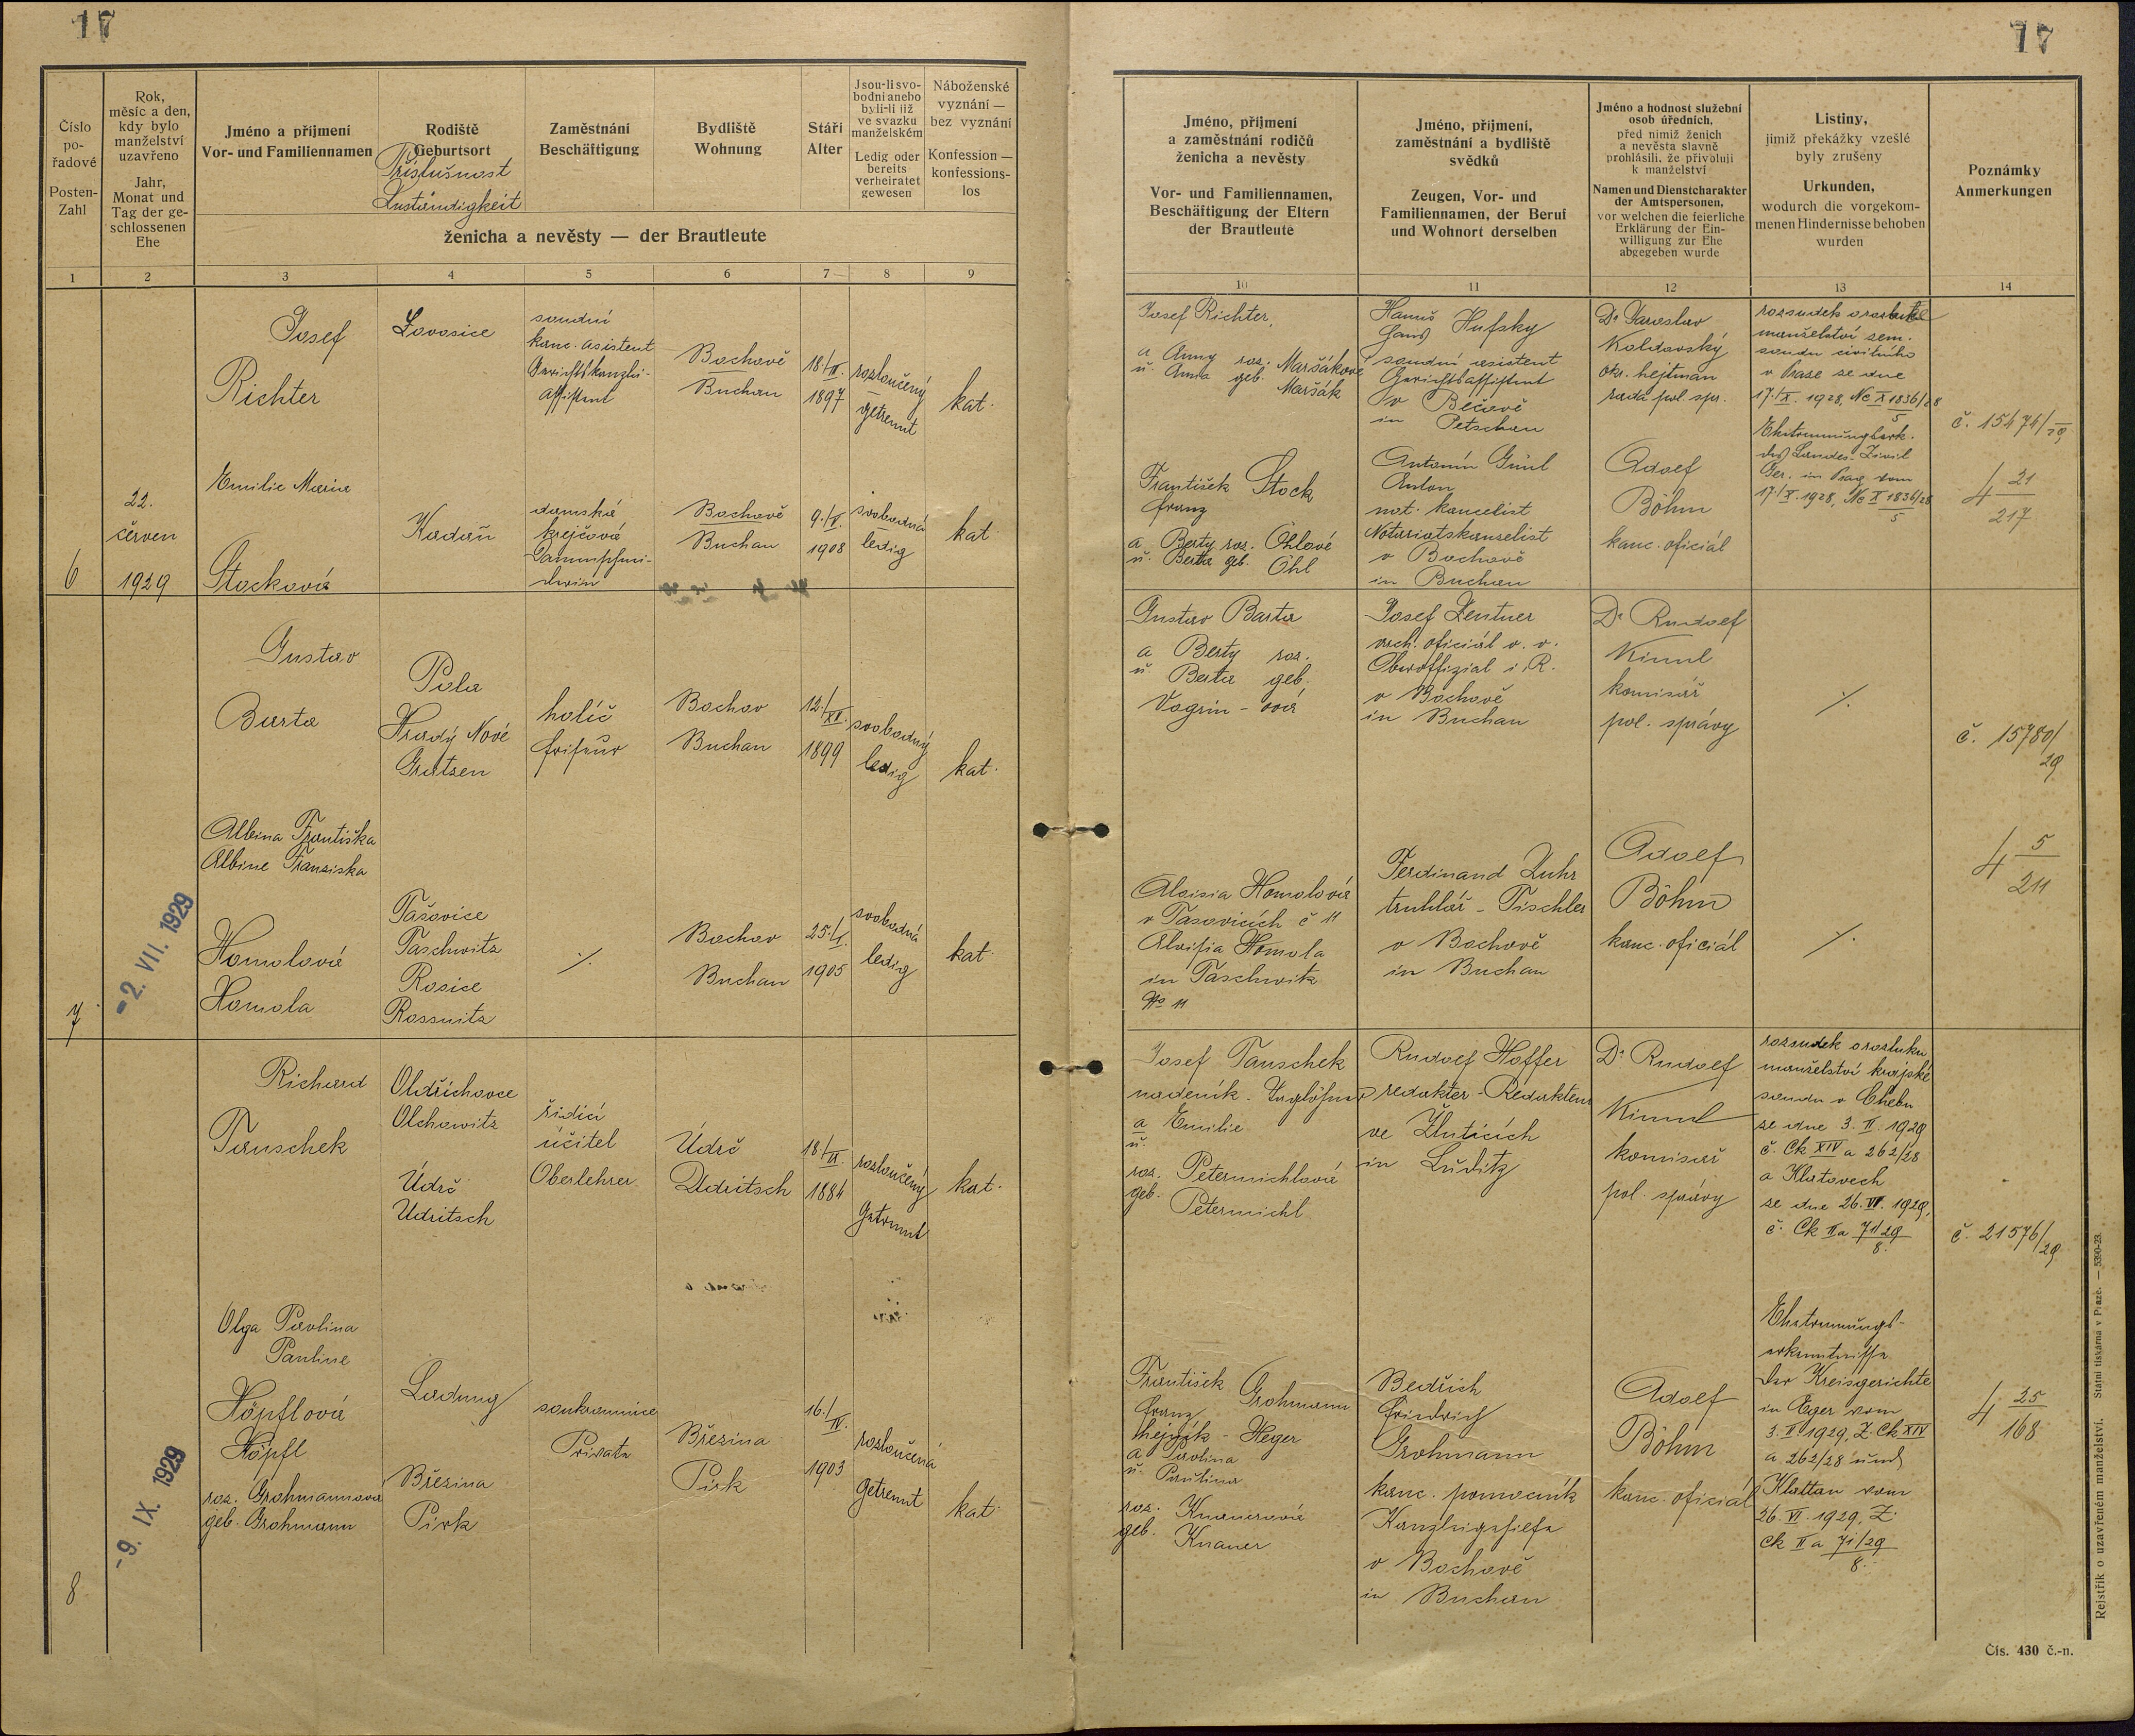 17
17
Číslo
po-
řadové
Posten-
Zahl
Rok,
měsíc a den,
kdy bylo
manželství
uzavřeno
Jahr,
Monat und
Tag der ge-
schlossenen
Ehe
Jméno a příjmení
Vor- und Familiennamen
Rodiště
Geburtsort
Příslušnost
Zuständigkeit
Zaměstnání
Beschäftigung
Bydliště
Wohnung
Stáří
Alter
Jsou-li svo-
bodni anebo
byli-li již
ve svazku
manželském
Ledig oder
bereits
verheiratet
gewesen
Náboženské
vyznání —
bez vyznání
Konfession —
konfessions-
los
ženicha a nevěsty — der Brautleute
1 2 3 4 5 6 7 8 9
Jméno, příjmení
a zaměstnání rodičů
ženicha a nevěsty
Vor- und Familiennamen,
Beschäftigung der Eltern
der Brautleute
Jméno, příjmení,
zaměstnání a bydliště
svědků
Zeugen, Vor- und
Familiennamen, der Beruf
und Wohnort derselben
Jméno a hodnost služební
osob úředních,
před nimiž ženich
a nevěsta slavně
prohlásili, že přivolují
k manželství
Namen und Dienstcharakter
der Amtspersonen,
vor welchen die feierliche
Erklärung der Ein-
willigung zur Ehe
abgegeben wurde
Listiny,
jimiž překážky vzešlé
byly zrušeny
Urkunden,
wodurch die vorgekom-
menen Hindernisse behoben
wurden
Poznámky
Anmerkungen
10 11 12 13 14
6
22.
červen
1929
Josef
Richter
Lovosice
soudní
kanc. asistent
Gerichtskanzlei-
assistent
Bochově
Buchau
18./II.
1897
rozloučený
getrennt
kat.
Emilie Marie
Stocková
Kadaň
damská
krejčová
Bochově
Buchau
9./V.
1908
svobodná
ledig
kat.
Josef Richter,
a Anny roz. Maršákové
u. Anna geb. Maršák
Hanuš
Hans Hufsky
soudní asistent
Gerichtsassistent
v Bečově
in Petschau
Dr Jaroslav
Koldovský
okr. hejtman
rada pol. spr.
rozsudek o rozluce
manželství zem.
soudu civilního
v Praze ze dne
17./X. 1928, Nc X 1836/28
5
č. 15474/29
František Stock
Franz
a Berty roz. Öhlové
u. Berta geb. Öhl
Antonín Günl
Anton
not. kancelist
Notariatskanzelist
v Bochově
in Buchau
Adolf
Böhm
kanc. oficiál
des Landes-Zivil
Ger. in Prag vom
17./X. 1928, Nc X 1836/28
5
4 21
217
7
- 2. VII. 1929
Gustav
Barta
Pola
Hrady Nové
Gratzen
holič
Friseur
Bochov
Buchau
12./XI.
1899
svobodný
ledig
kat.
Albina Františka
Albine Franziska
Homolová
Homola
Tašovice
Taschwitz
Rosice
Rossnitz
·/.
Bochov
Buchau
25./I.
1905
svobodná
ledig
kat.
Gustav Barta
a Berty roz.
u. Berta geb.
Vogrin - ová
Josef Zentner
vrch. oficiál v. v.
Oberoffizial i. R.
v Bochově
in Buchau
Dr Rudolf
Kinnl
komisař
pol. správy
·/.
č. 15780/
29
Aloisia Homolová
v Tasovicích č 11
Aloisia Homola
in Taschwitz
No 11
Ferdinand Zuhr
truhlář - Tischler
v Bochově
in Buchau
Adolf
Böhm
kanc. oficiál
·/.
4 5
211
8
- 9. IX. 1929
Richard
Tauschek
Oldřichovce
Olchowitz
Údrč
Udritsch
řídící
účitel
Oberlehrer
Údrč
Udritsch
18./VI.
1884
rozloučený
Getrennt
kat.
Olga Pavlina
Pauline
Höpflová
Höpfl
roz. Grohmannová
geb. Grohmann
Ladung
Březina
Pirk
soukromnice
Private
Březina
Pirk
16./IV.
1903
rozloučená
Getrennt
kat.
Josef Tauschek
nádeník - Taglöhner
a Emilie
u.
roz. Petermichlová
geb. Petermichl
Rudolf Hoffer
redaktér - Redakteur
ve Žluticích
in Luditz
Dr Rudolf
Kinnl
komisař
pol. správy
rozsudek o rozluku
manželství krajské
soudu v Chebu
ze dne 3. II. 1929
č. Ck XIV a 262/28
a Klatovech
ze dne 26. VI. 1929,
č. Ck II a 71/29
8.
č. 21576/29
František Grohmann
Franz
hejný - Heger
a Pavlina
u. Paulina
roz. Knauerová
geb. Knauer
Bedřich
Friedrich
Grohmann
kanc. pomocník
Kanzleigehilfe
v Bochově
in Buchau
Adolf
Böhm
kanc. oficiál
Ehetrennungs-
erkenntnisse
der Kreisgerichte
in Eger vom
3. II. 1929, Z. Ck XIV
a 262/28 und
Klattau vom
26. VI. 1929, Z.
Ck II a 71/29
8.
4 25
168
Rejstřík o uzavřeném manželství. Státní tiskárna v Praze. — 5390-23.
Čís. 430 č.-n.